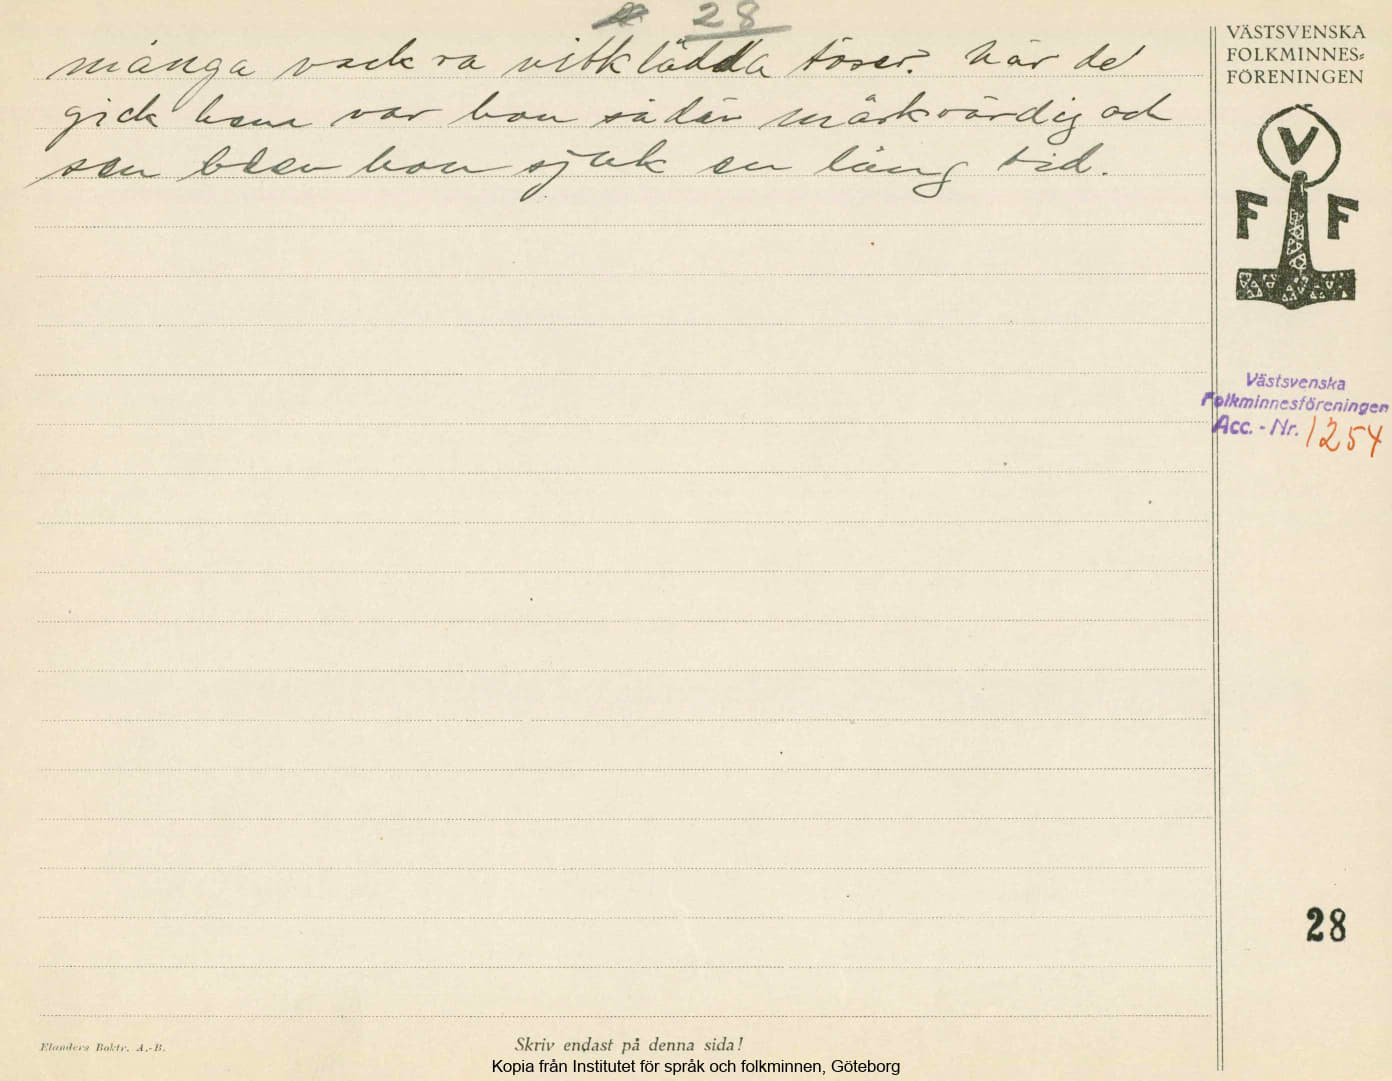 28
många vackra vitklädda töser? När de
gick hem var hon sådär märkvärdig och
sen blev hon sjuk en lång tid.
VÄSTSVENSKA
FOLKMINNES-
FÖRENINGEN
V
F F
Västsvenska
Folkminnesföreningen
Acc. - Nr. 1254
28
Elanders Boktr. A.-B.
Skriv endast på denna sida!
Kopia från Institutet för språk och folkminnen, Göteborg